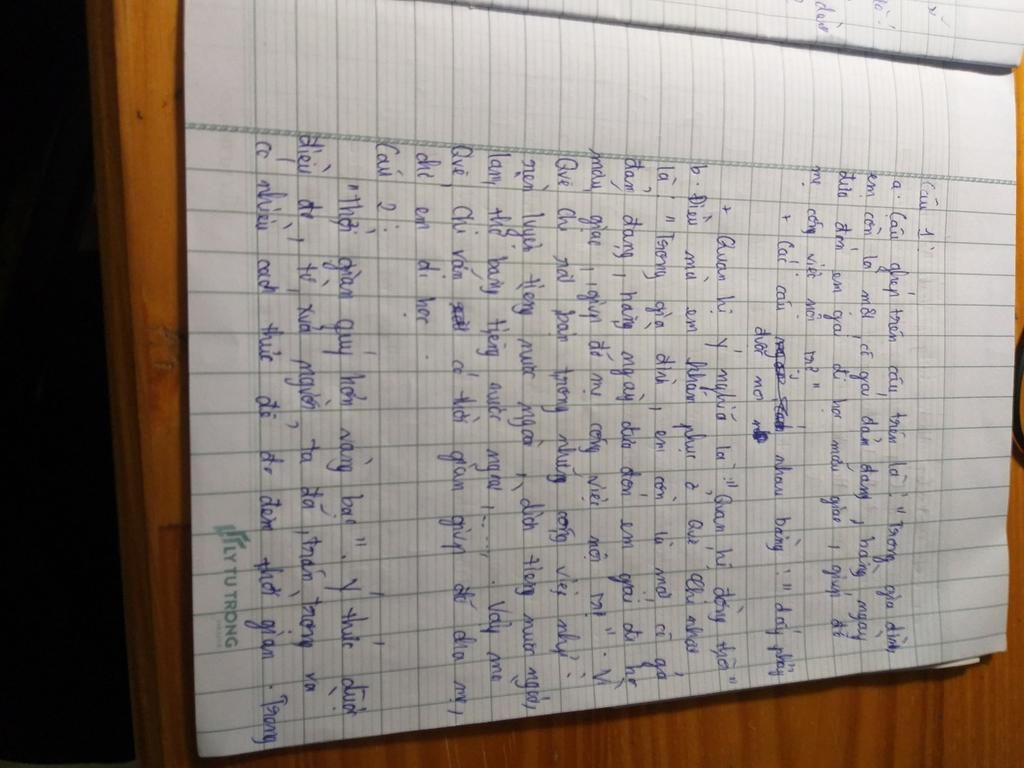 Câu 1:
a. Câu ghép trên câu trên là: "Trong gia đình,
em còn là một cô gái đảm đang, hàng ngày
đưa đón em gái đi học mẫu giáo, giúp đỡ
mẹ công việc nội trợ"
+ Các câu nhau bằng: "dấu phẩy
+ Quan hệ ý nghĩa là: "Quan hệ đồng thời"
b. Điều mà em khâm phục ở Quế Chi nhất
là: "Trong gia đình, em còn là một cô gái
đảm đang, hàng ngày đưa đón em gái đi học
mẫu giáo, giúp đỡ mẹ công việc nội trợ". Vì
Quế Chi rất bận trong những công việc như:
rèn luyện tiếng nước ngoài, dịch tiếng nước ngoài,
làm thơ bằng tiếng nước ngoài,.... Vậy mà
Quế Chi vẫn có thời gian giúp đỡ cha mẹ,
chở em đi học.
Câu 2:
"Thời gian quý hơn vàng bạc". Ý thức được
điều đó, từ xưa người ta đã trân trọng và
có nhiều cách thức để đo đếm thời gian. Trong
LY TU TRONG